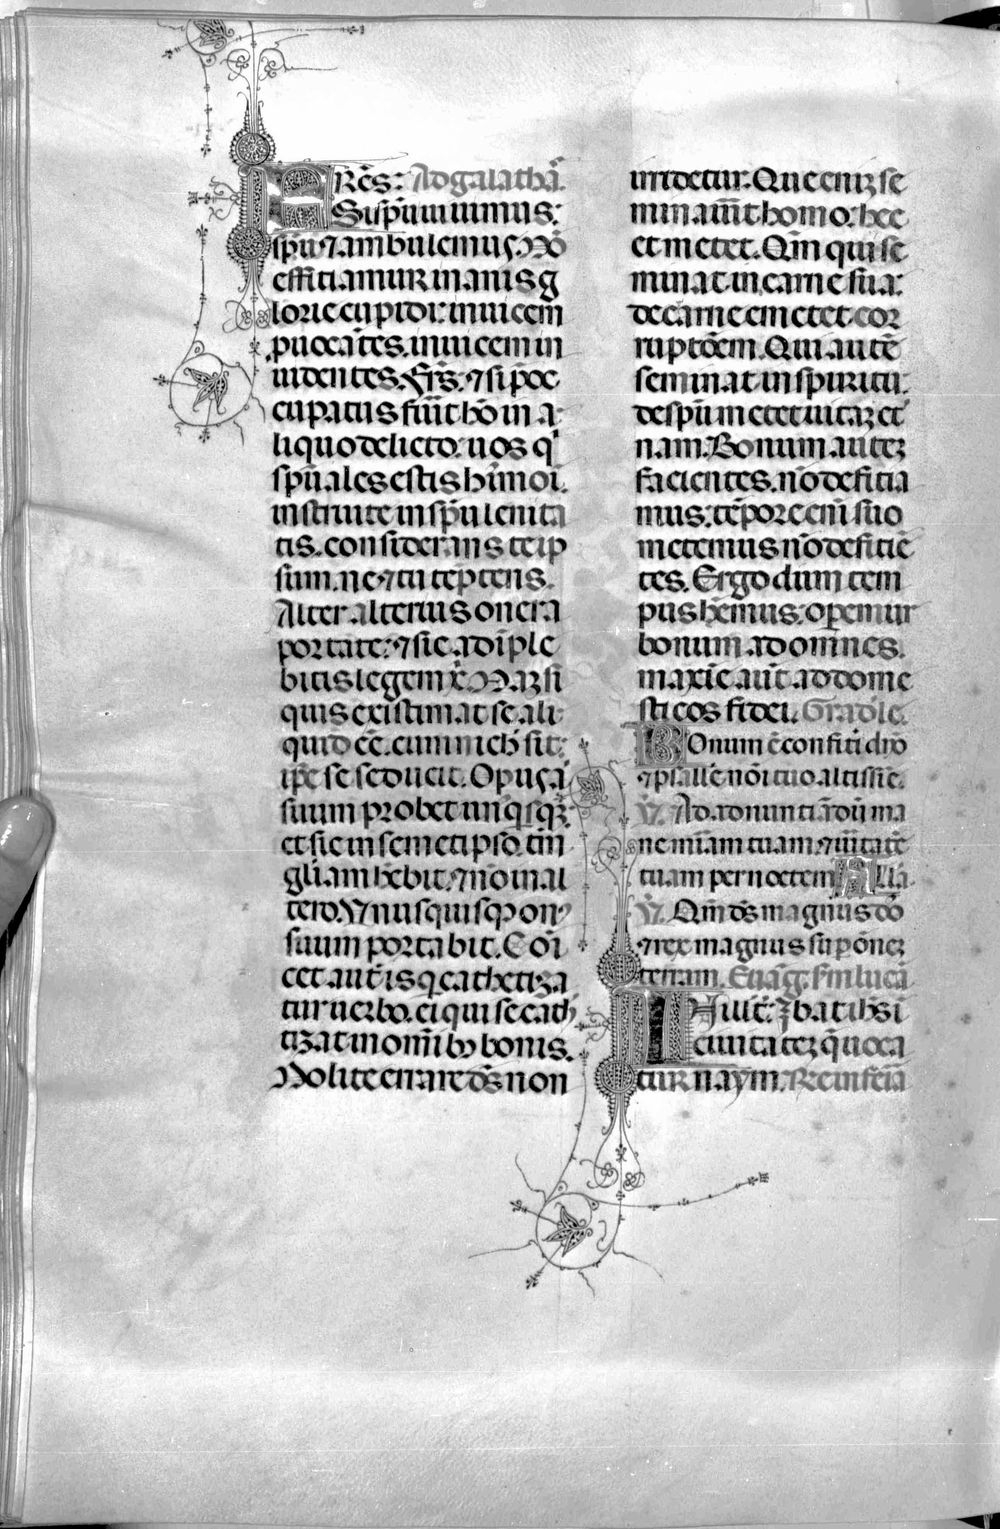 FRēs: Ad galathā.
Si spū uiuimus:
spū ⁊ ambulemus. Nō
efficiamur inanis g
lorie cupidi: inuicem
puocātes. inuicem in
uidentes. Frs̄. ⁊ si p̄oc
cupatus fuīt hō in a
liquo delicto: uos q
spūales estis hīmoī
instruite in spū lenita
tis. considerans teip
sum. ne ⁊ tu tēpteris.
Alter alterius onera
portate: ⁊ sic adīple
bitis legem xp̄i. Naꝫ si
quis existimat se ali
quid eē. cum nich sit:
ip̄e se seducit. Opus ā
suum probet unqsqꝫ
et sic in semetipso. tm̄
gliam hēbit. ⁊ nō in al
tero. Ynusquisqꝫ on
suum portabit. Coī
cet aut is q̄ cathetiza
tur uerbo. ei qui se cath
tizat in omībꝫ bonis.
Nolite errare dS̄ non
irridetur. Que eniꝫ se
minauīt homo: hec
et metet. Qm̄ qui se
minat in carne sua:
de carne et metet cor
ruptōem. Qui autē
seminat in spiritu:
de spū metet uitaꝫ et
nam. Bonum auteꝫ
facientes. nō deficia
mus: tēpore eni suo
metemus nō deficiē
tes. Ergo dum tem
pus hēmus: operemur
bonum ad omnes.
maxīe aut ad dome
sticos fidei. Gradale.
BOnum ē confiti dn̄o
⁊ psallē nōi tuo altissīe.
V̄. Ad adnuntiādū ma
ne mīam tuam. ⁊ uītatē
tuam per noctem Alla
V̄. Qm̄ dS̄ magnus dō
⁊ rex magnus sup ōneꝫ
terram. Euāg. fm lucā
IN illt̄: Ibat ihS̄ ī
ciuitateꝫ q̄ uoca
tur naym. Re